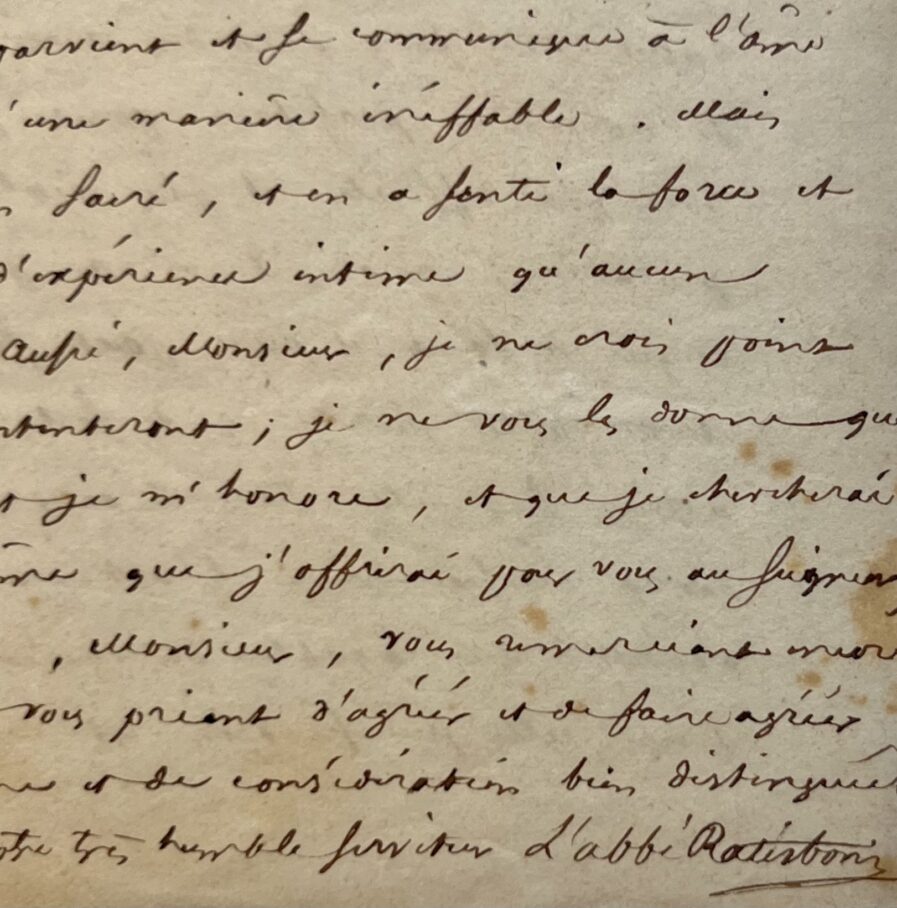 parvient et se communique à l'âme
d'une manière inéffable. Mais
sacré, et en a senti la force et
d'expérience intime qu'aucun
Aussi, Monsieur, je ne crois point
ntenteront; je ne vous les donne que
je m'honore, et que je chercherai
que j'offrirai pour vous au Seigneur
, Monsieur, vous remerciant encore
vous priant d'agréer et de faire agréer
et de considération bien distinguée
votre très humble serviteur L'abbé Ratisbonne